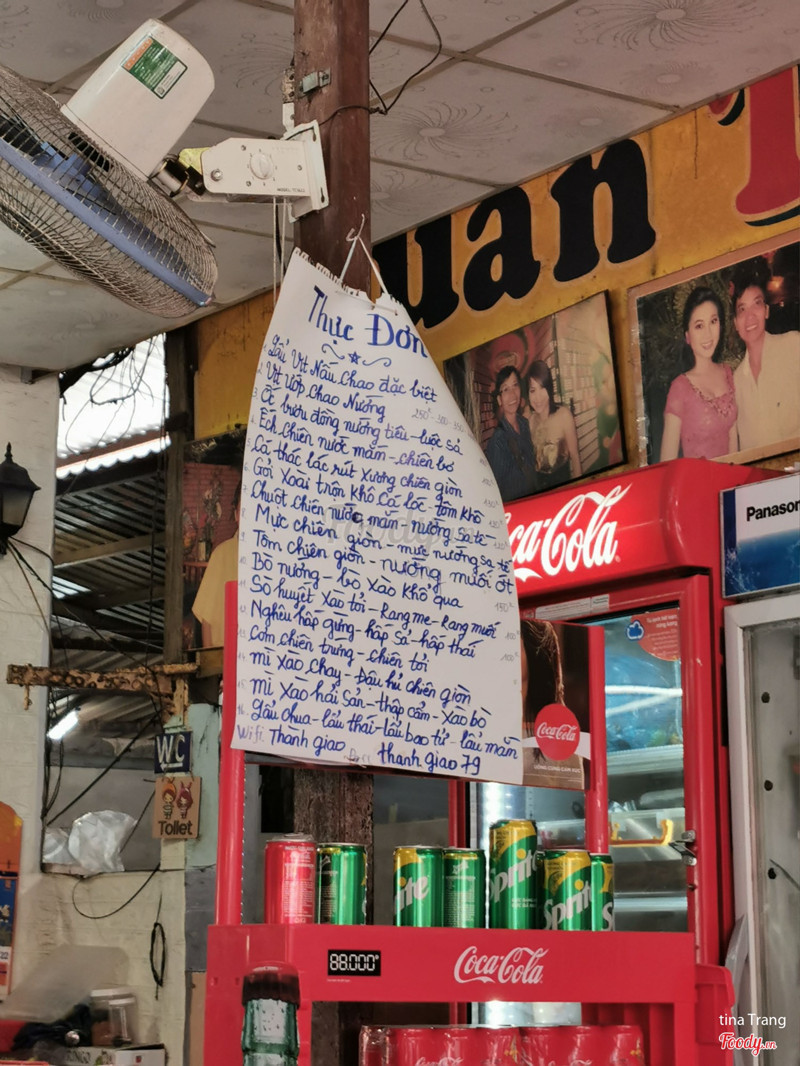 uan T
Thực Đơn
1. Lẩu Vịt Nấu Chao đặc biệt
2. Vịt Ướp Chao Nướng 250-300-350
3 Ốc bươu đồng nướng tiêu-luộc sả
4 Ếch Chiên nước mắm-chiên bơ
5 Cá thác lác rút xương chiên giòn
6. Gỏi Xoài trộn khô Cá lóc-tôm khô
7. Chuột Chiên nước mắm-nướng sa tế
8 Mực chiên giòn-mực nướng sa tế
9 Tôm chiên giòn-nướng muối ớt
10 Bò nướng-bò xào khổ qua 150
11. Sò huyết xào tỏi-Rang me-Rang muối
12. Nghêu hấp gừng-hấp sả-hấp thái 100
13. Cơm chiên trứng-chiên tỏi
14. mì xào chay-Đậu hủ chiên giòn
15. mì xào hải sản-thập cẩm-xào bò
16. Lẩu chua-lẩu thái-lẩu bao tử-lẩu mắm
Wifi. Thanh giao thanh giao 79
Coca-Cola
Panason
W.C
Toilet
Coca-Cola
Sprite
Sprite
Sprite
88.000đ
Coca-Cola
tina Trang
Foody.vn